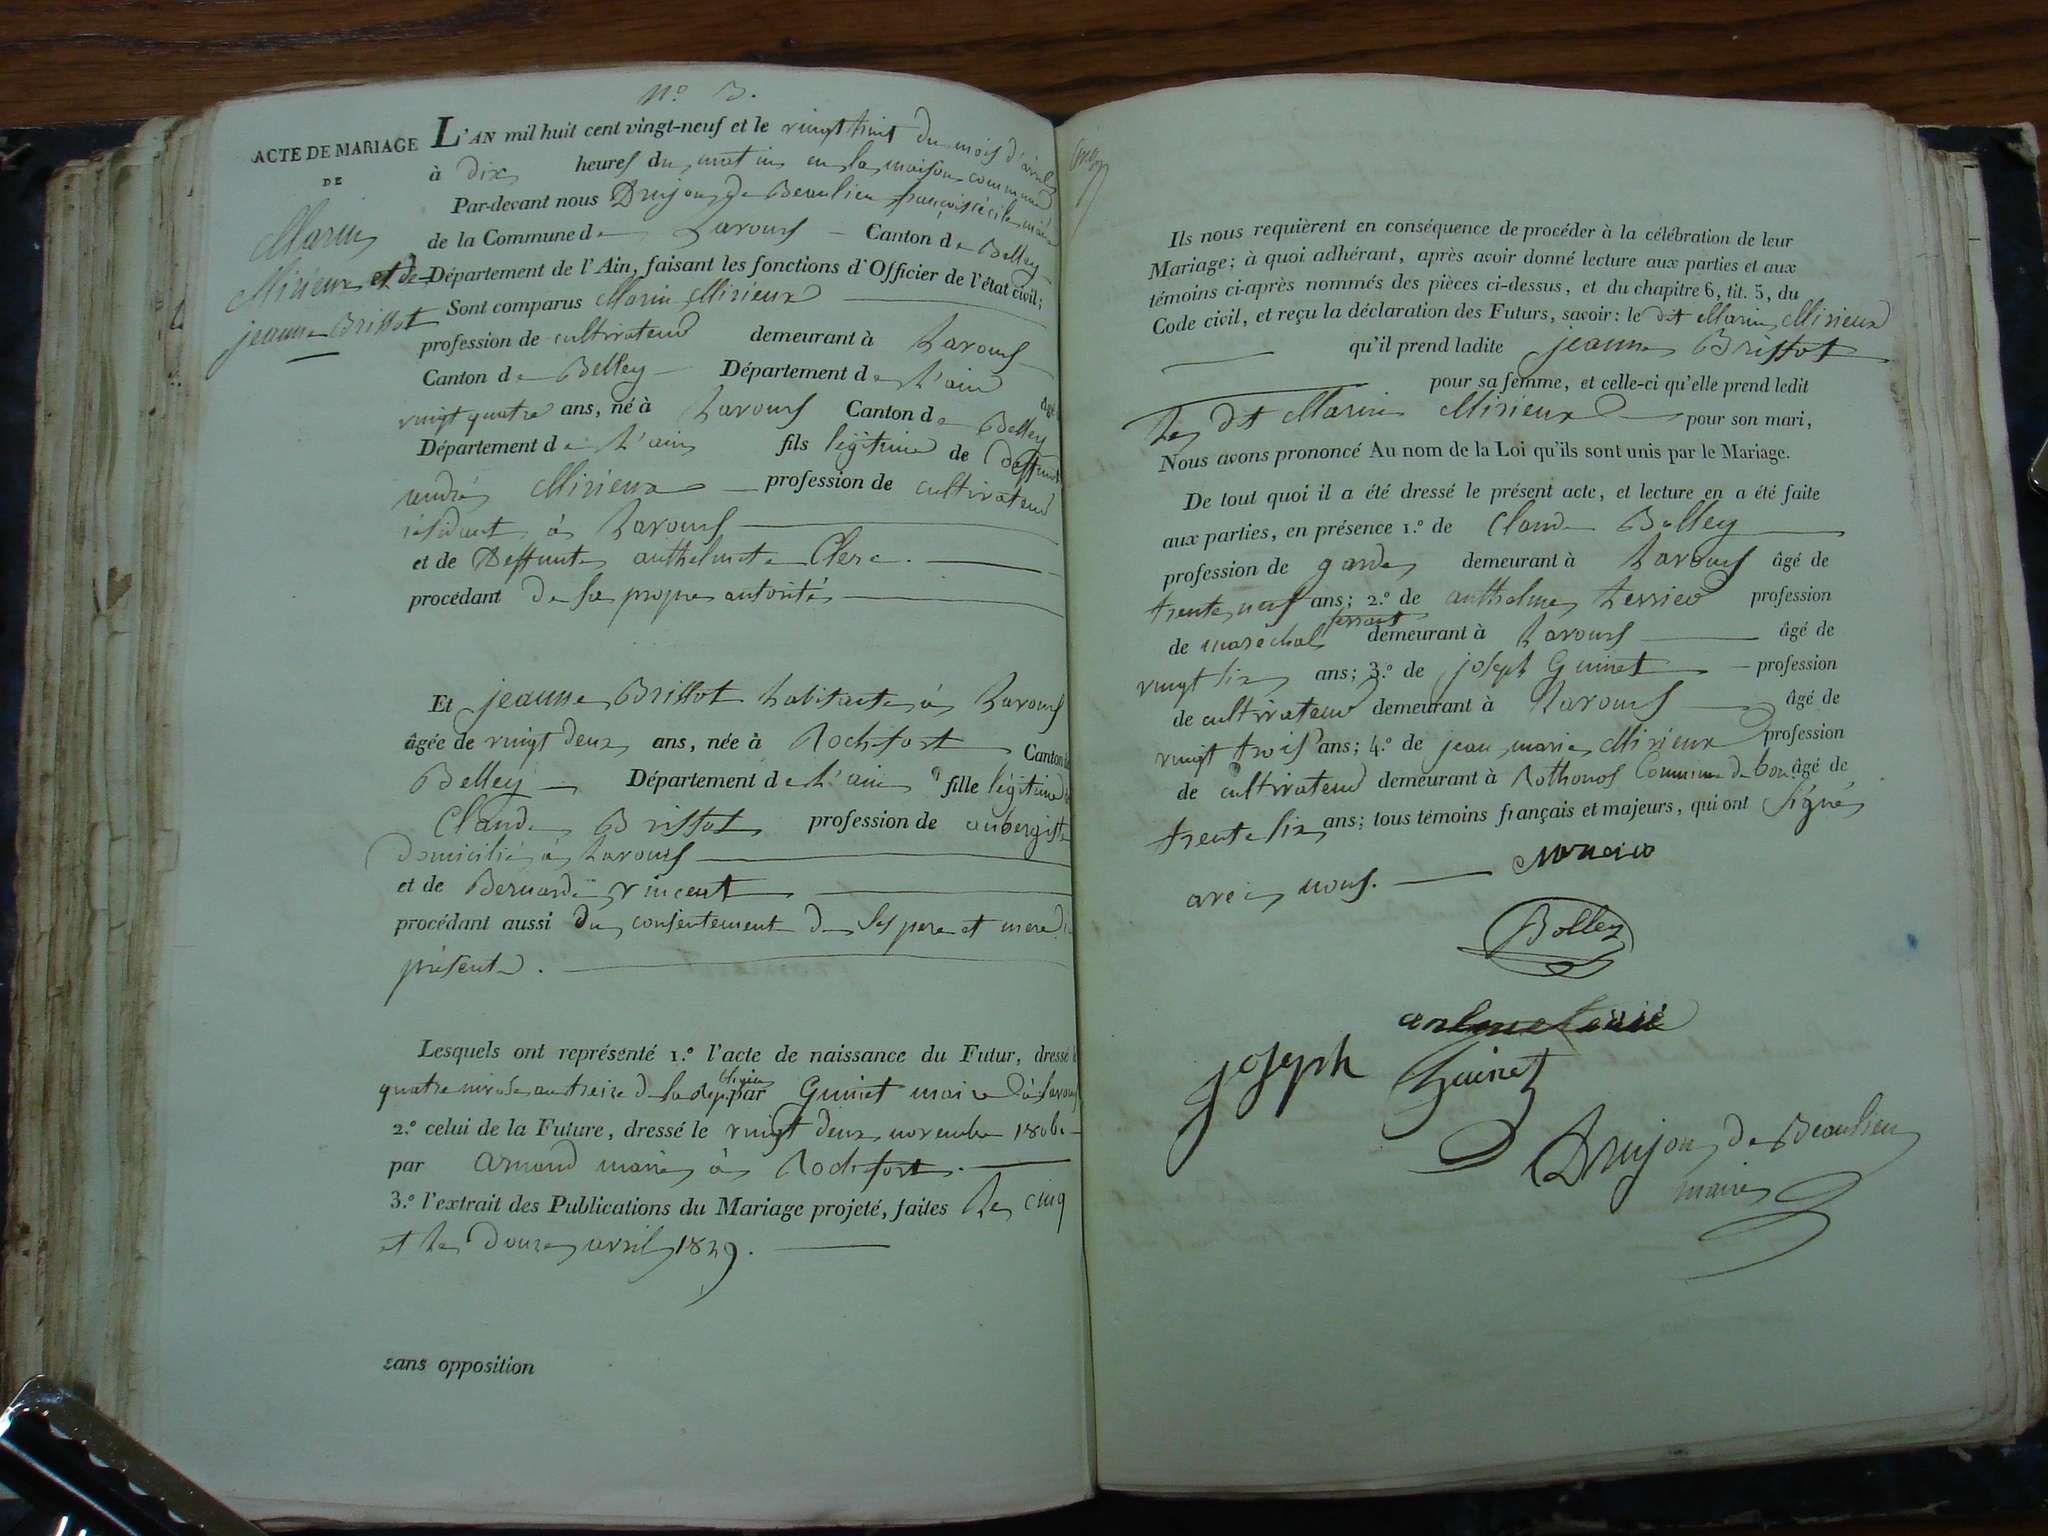 N.o 3.
ACTE DE MARIAGE
DE
Marin
Mirieux et de
jeanne Brissot
L'AN mil huit cent vingt-neuf et le vingt huit du mois d'avril
à dix heures du matin en la maison commune
Par-devant nous Drujon de Beaulieu françois cécile maire
de la Commune de Lavours Canton de Belley
Département de l'Ain, faisant les fonctions d'Officier de l'état civil;
Sont comparus Marin Mirieux
profession de cultivateur demeurant à Lavours
Canton de Belley Département de L'ain âgé
vingt quatre ans, né à Lavours Canton de Belley
Département de L'ain fils légitime de deffunt
andré Mirieux profession de cultivateur
résidant à Lavours
et de Deffunte anthelmete Clerc.
procédant de sa propre autorité
Et jeanne Brissot habitante à Lavours
âgée de vingt deux ans, née à Rochefort Canton de
Belley Département de L'ain fille légitime de
Claude Brissot profession de aubergiste
domicilié à Lavours
et de Bernardi vincent
procédant aussi du consentement de ses pere et mere ici
présents.
Lesquels ont représenté 1.º l'acte de naissance du Futur, dressé le
quatre nivose an treize de la rep. par Guinet maire à Lavours
2.º celui de la Future, dressé le vingt deux novembre 1806
par Arnaud maire à Rochefort.
3.º l'extrait des Publications du Mariage projeté, faites Le cinq
et Le douze avril 1829.
sans opposition
Ils nous requièrent en conséquence de procéder à la célébration de leur
Mariage; à quoi adhérant, après avoir donné lecture aux parties et aux
témoins ci-après nommés des pièces ci-dessus, et du chapitre 6, tit. 5, du
Code civil, et reçu la déclaration des Futurs, savoir: le dit Marin Mirieux
qu'il prend ladite jeanne Brissot
pour sa femme, et celle-ci qu'elle prend ledit
Le dt Marin Mirieux pour son mari,
Nous avons prononcé Au nom de la Loi qu'ils sont unis par le Mariage.
De tout quoi il a été dressé le présent acte, et lecture en a été faite
aux parties, en présence 1.º de Claude Bolley
profession de garde demeurant à Lavours âgé de
trente neuf ans; 2.º de anthelme Terrier profession
de marechal ferrant demeurant à Lavours âgé de
vingt six ans; 3.º de joseph Guinet profession
de cultivateur demeurant à Lavours âgé de
vingt trois ans; 4.º de jean marie Mirieux profession
de cultivateur demeurant à Rothonos Commune de bon âgé de
trente six ans; tous témoins français et majeurs, qui ont signé
avec nous.
Bolley
joseph Guinet
Drujon de Beaulieu
maire